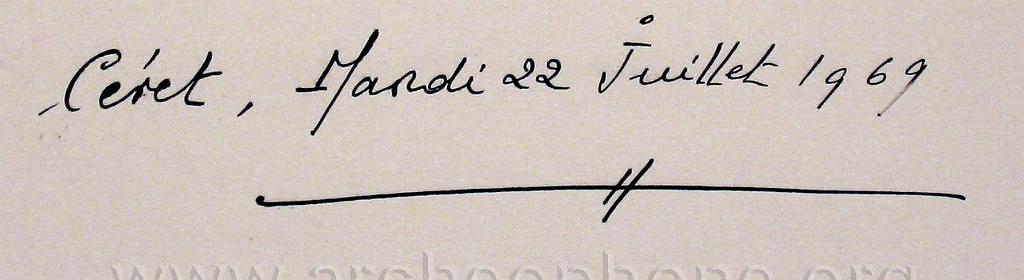 Céret, Mardi 22 Juillet 1969
www.archeophone.org